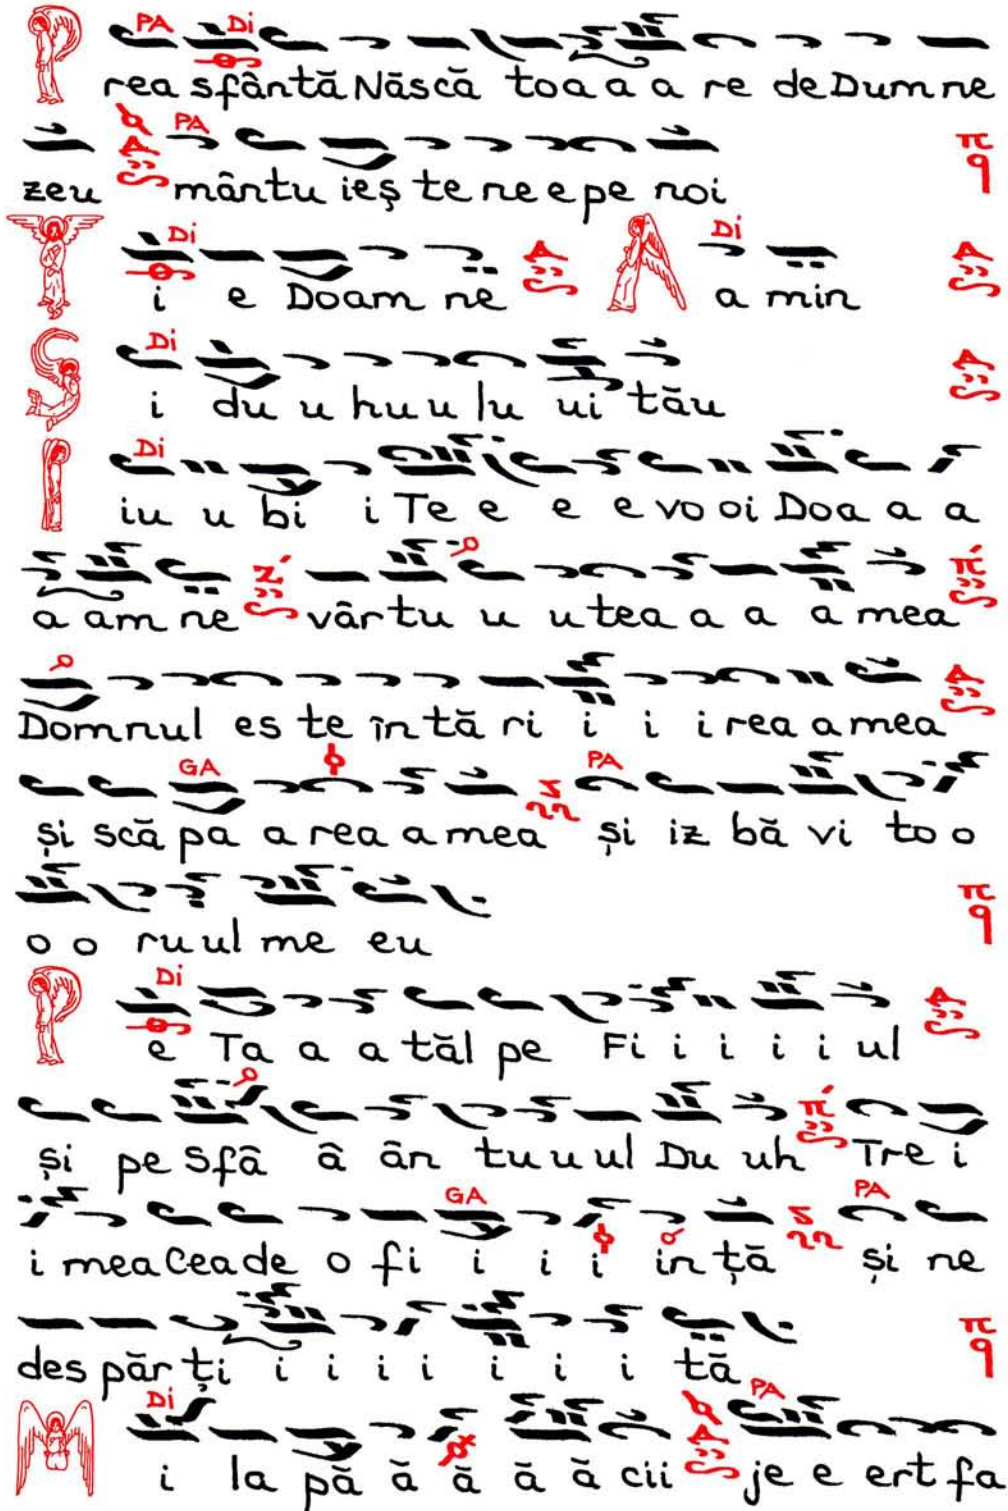 PA Di
Prea sfântă Născă toa a a re de Dum ne
PA
zeu mântu ieș te ne e pe noi
Di Di
Ți e Doam ne A a min
Di
Și i du u hu u lu ui tău
Di
Iu iu u bi i Te e e e e vo oi Doa a a
a am ne vâr tu u u tea a a a mea
Domnul es te în tă ri i i i rea a mea
GA PA
și scă pa a rea a mea și iz bă vi to o
o o ru ul me eu
Di
Pe Ta a a tăl pe Fi i i i i ul
și pe Sfâ â ân tu u ul Du uh Tre i
GA PA
i mea Cea de o fi i i i in ță și ne
des păr ți i i i i i i i tă
Di PA
Mi la pă ă ă ă ă cii je e ert fa